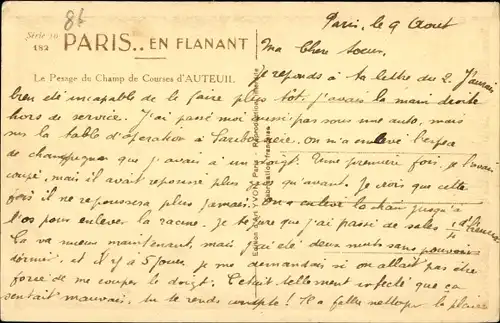 86
Série 10
182
PARIS.. EN FLANANT
Le Pesage du Champ de Courses d'AUTEUIL
Paris, le 9 Août
Ma Chère Soeur,
Je réponds à ta lettre du 2. J'aurais
bien été incapable de le faire plus tôt. J'avais la main droite
hors de service. J'ai passé moi aussi pas sous une auto, mais
sur la table d'opération à Lariboisière. On m'a enlevé l'espèce
de champignon que j'avais à un doigt. Une première fois, je l'avais
coupé, mais il avait repoussé plus qu'avant. Je crois que cette
fois il ne repoussera plus jamais. On a enlevé la chair jusqu'à
l'os pour enlever la racine. Je te jure que j'ai passé de sales 1/4 d'heures
Ça va mieux maintenant, mais j'ai été deux nuits sans pouvoir
dormir. et il y a 5 jours je me demandais si on allait pas être
forcé de me couper le doigt. C'était tellement infecté que ça
sentait mauvais. tu te rends compte! Il a fallu nettoyer la plaie
Edition d'Art YVON, Paris - Reproduction interdite
Fabrication française